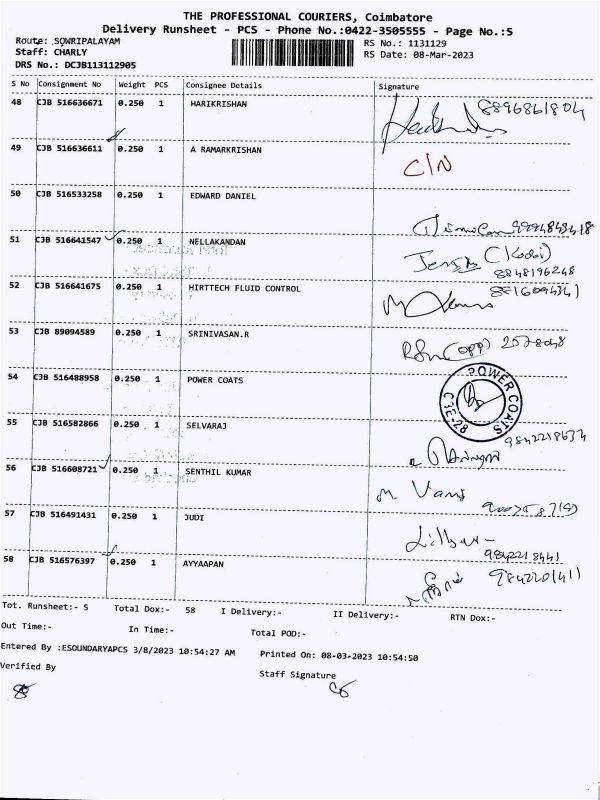 THE PROFESSIONAL COURIERS, Coimbatore
Delivery Runsheet - PCS - Phone No.:0422-3505555 - Page No.:5
Route: SOWRIPALAYAM
RS No.: 1131129
Staff: CHARLY
RS Date: 08-Mar-2023
DRS No.: DCJB113112905
S No Consignment No Weight PCS Consignee Details Signature
48 CJB 516636671 0.250 1 HARIKRISHAN 8896861804
49 CJB 516636611 0.250 1 A RAMARKRISHAN C/N
50 CJB 516533258 0.250 1 EDWARD DANIEL
51 CJB 516641547 0.250 1 NELLAKANDAN
8848196248
52 CJB 516641675 0.250 1 HIRTTECH FLUID CONTROL
53 CJB 89094589 0.250 1 SRINIVASAN.R (opp) 2578048
54 CJB 516488958 0.250 1 POWER COATS POWER COATS CBE-28
55 CJB 516582866 0.250 1 SELVARAJ 9842218634
56 CJB 516608721 0.250 1 SENTHIL KUMAR M. Vani
57 CJB 516491431 0.250 1 JUDI
9842218441
58 CJB 516576397 0.250 1 AYYAAPAN 9842201411
Tot. Runsheet:- 5 Total Dox:- 58 I Delivery:- II Delivery:- RTN Dox:-
Out Time:- In Time:- Total POD:-
Entered By :ESOUNDARYAPCS 3/8/2023 10:54:27 AM Printed On: 08-03-2023 10:54:50
Verified By
Staff Signature